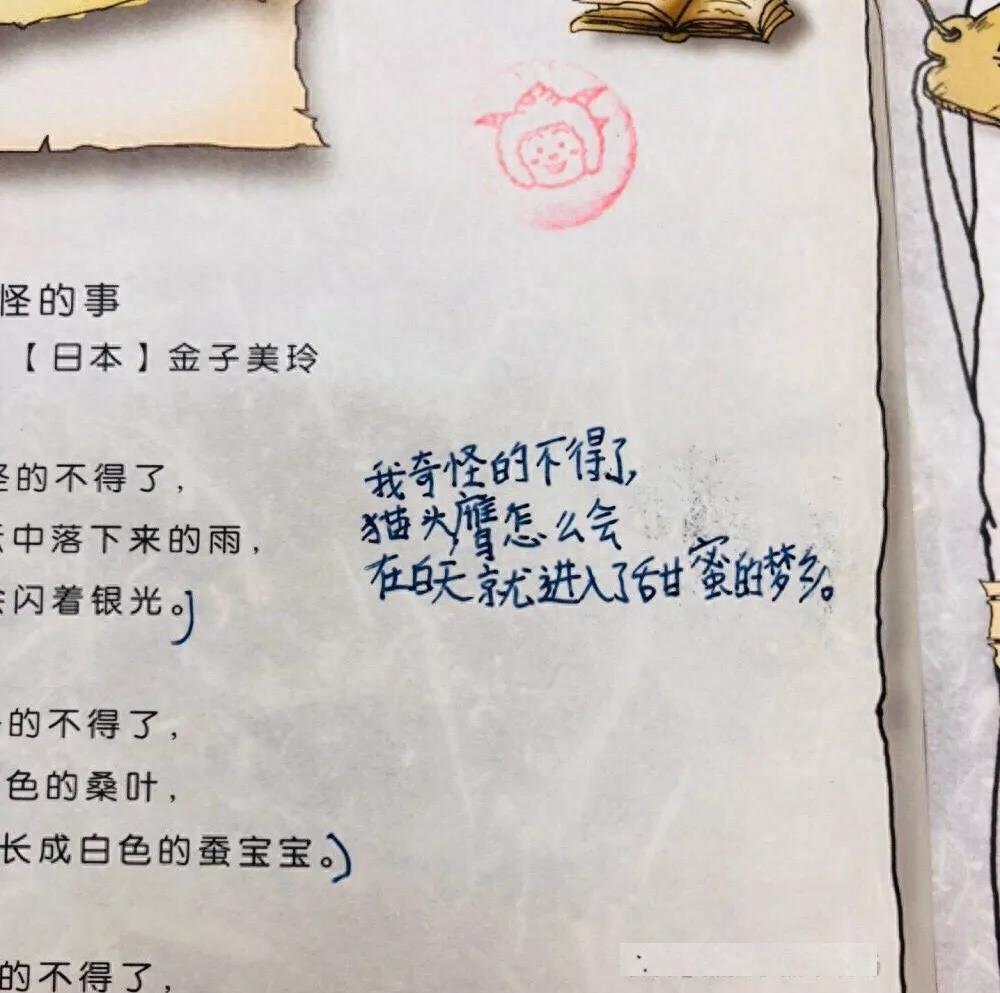 怪的事
【日本】金子美玲
怪的不得了，
中落下来的雨，
闪着银光。
我奇怪的不得了，
猫头鹰怎么会
在白天就进入了甜蜜的梦乡。
的不得了，
色的桑叶，
长成白色的蚕宝宝。
的不得了，